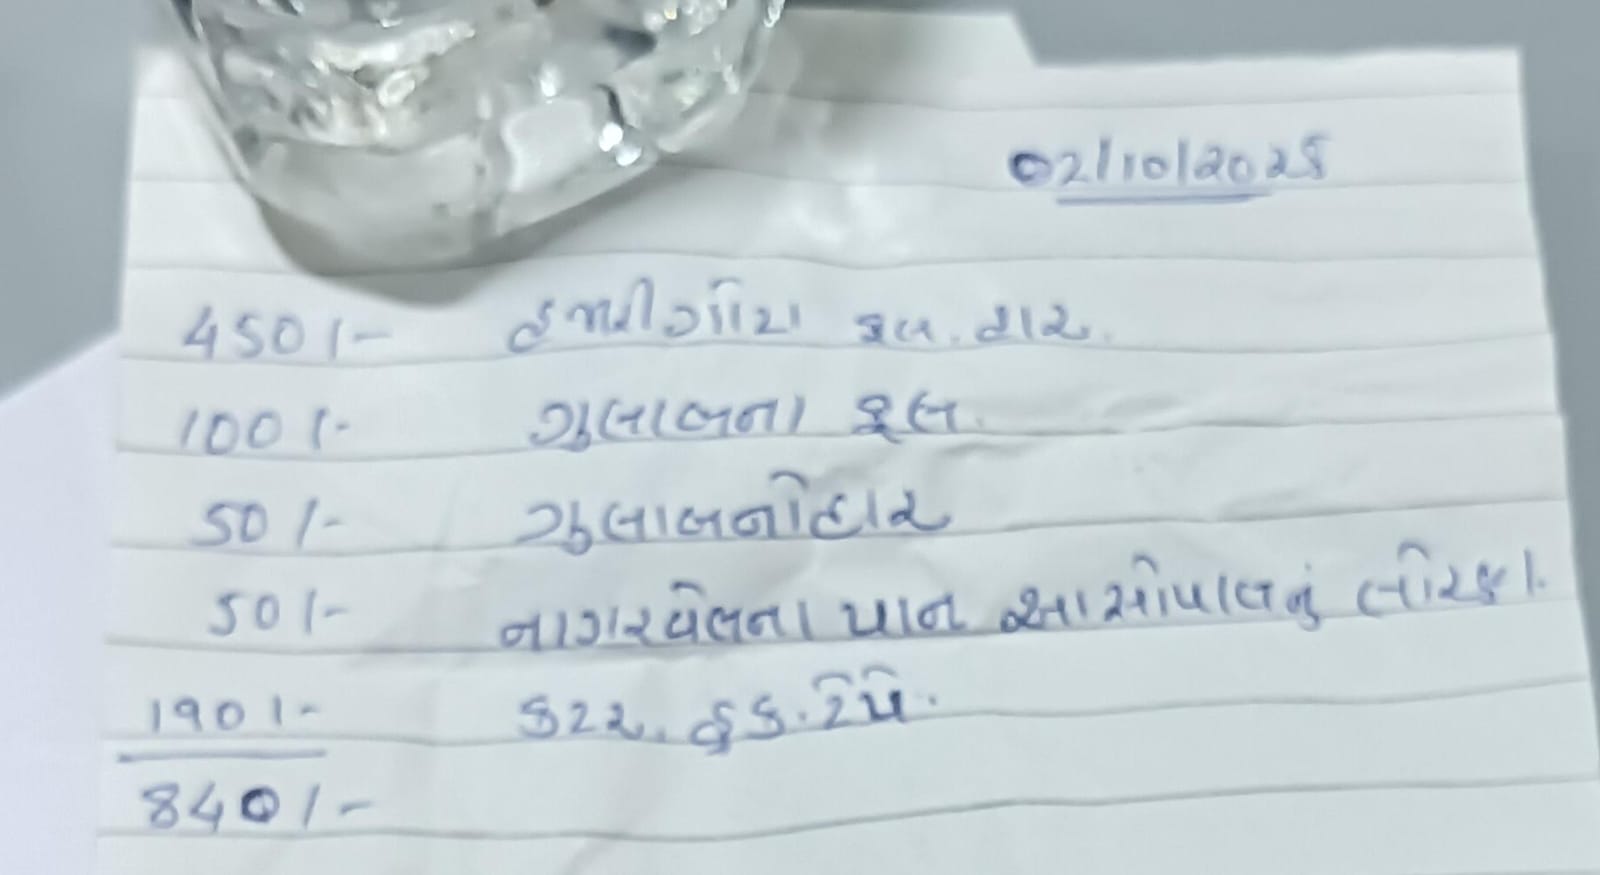 02/10/2025
450/- હજારીગોટા ફુલ. હાર.
100/- ગુલાબના ફૂલ.
50/- ગુલાબનો હાર
50/- નાગરવેલના પાન આસોપાલવનું તોરણ.
190/- કટર. હુક. ટેપ.
840/-